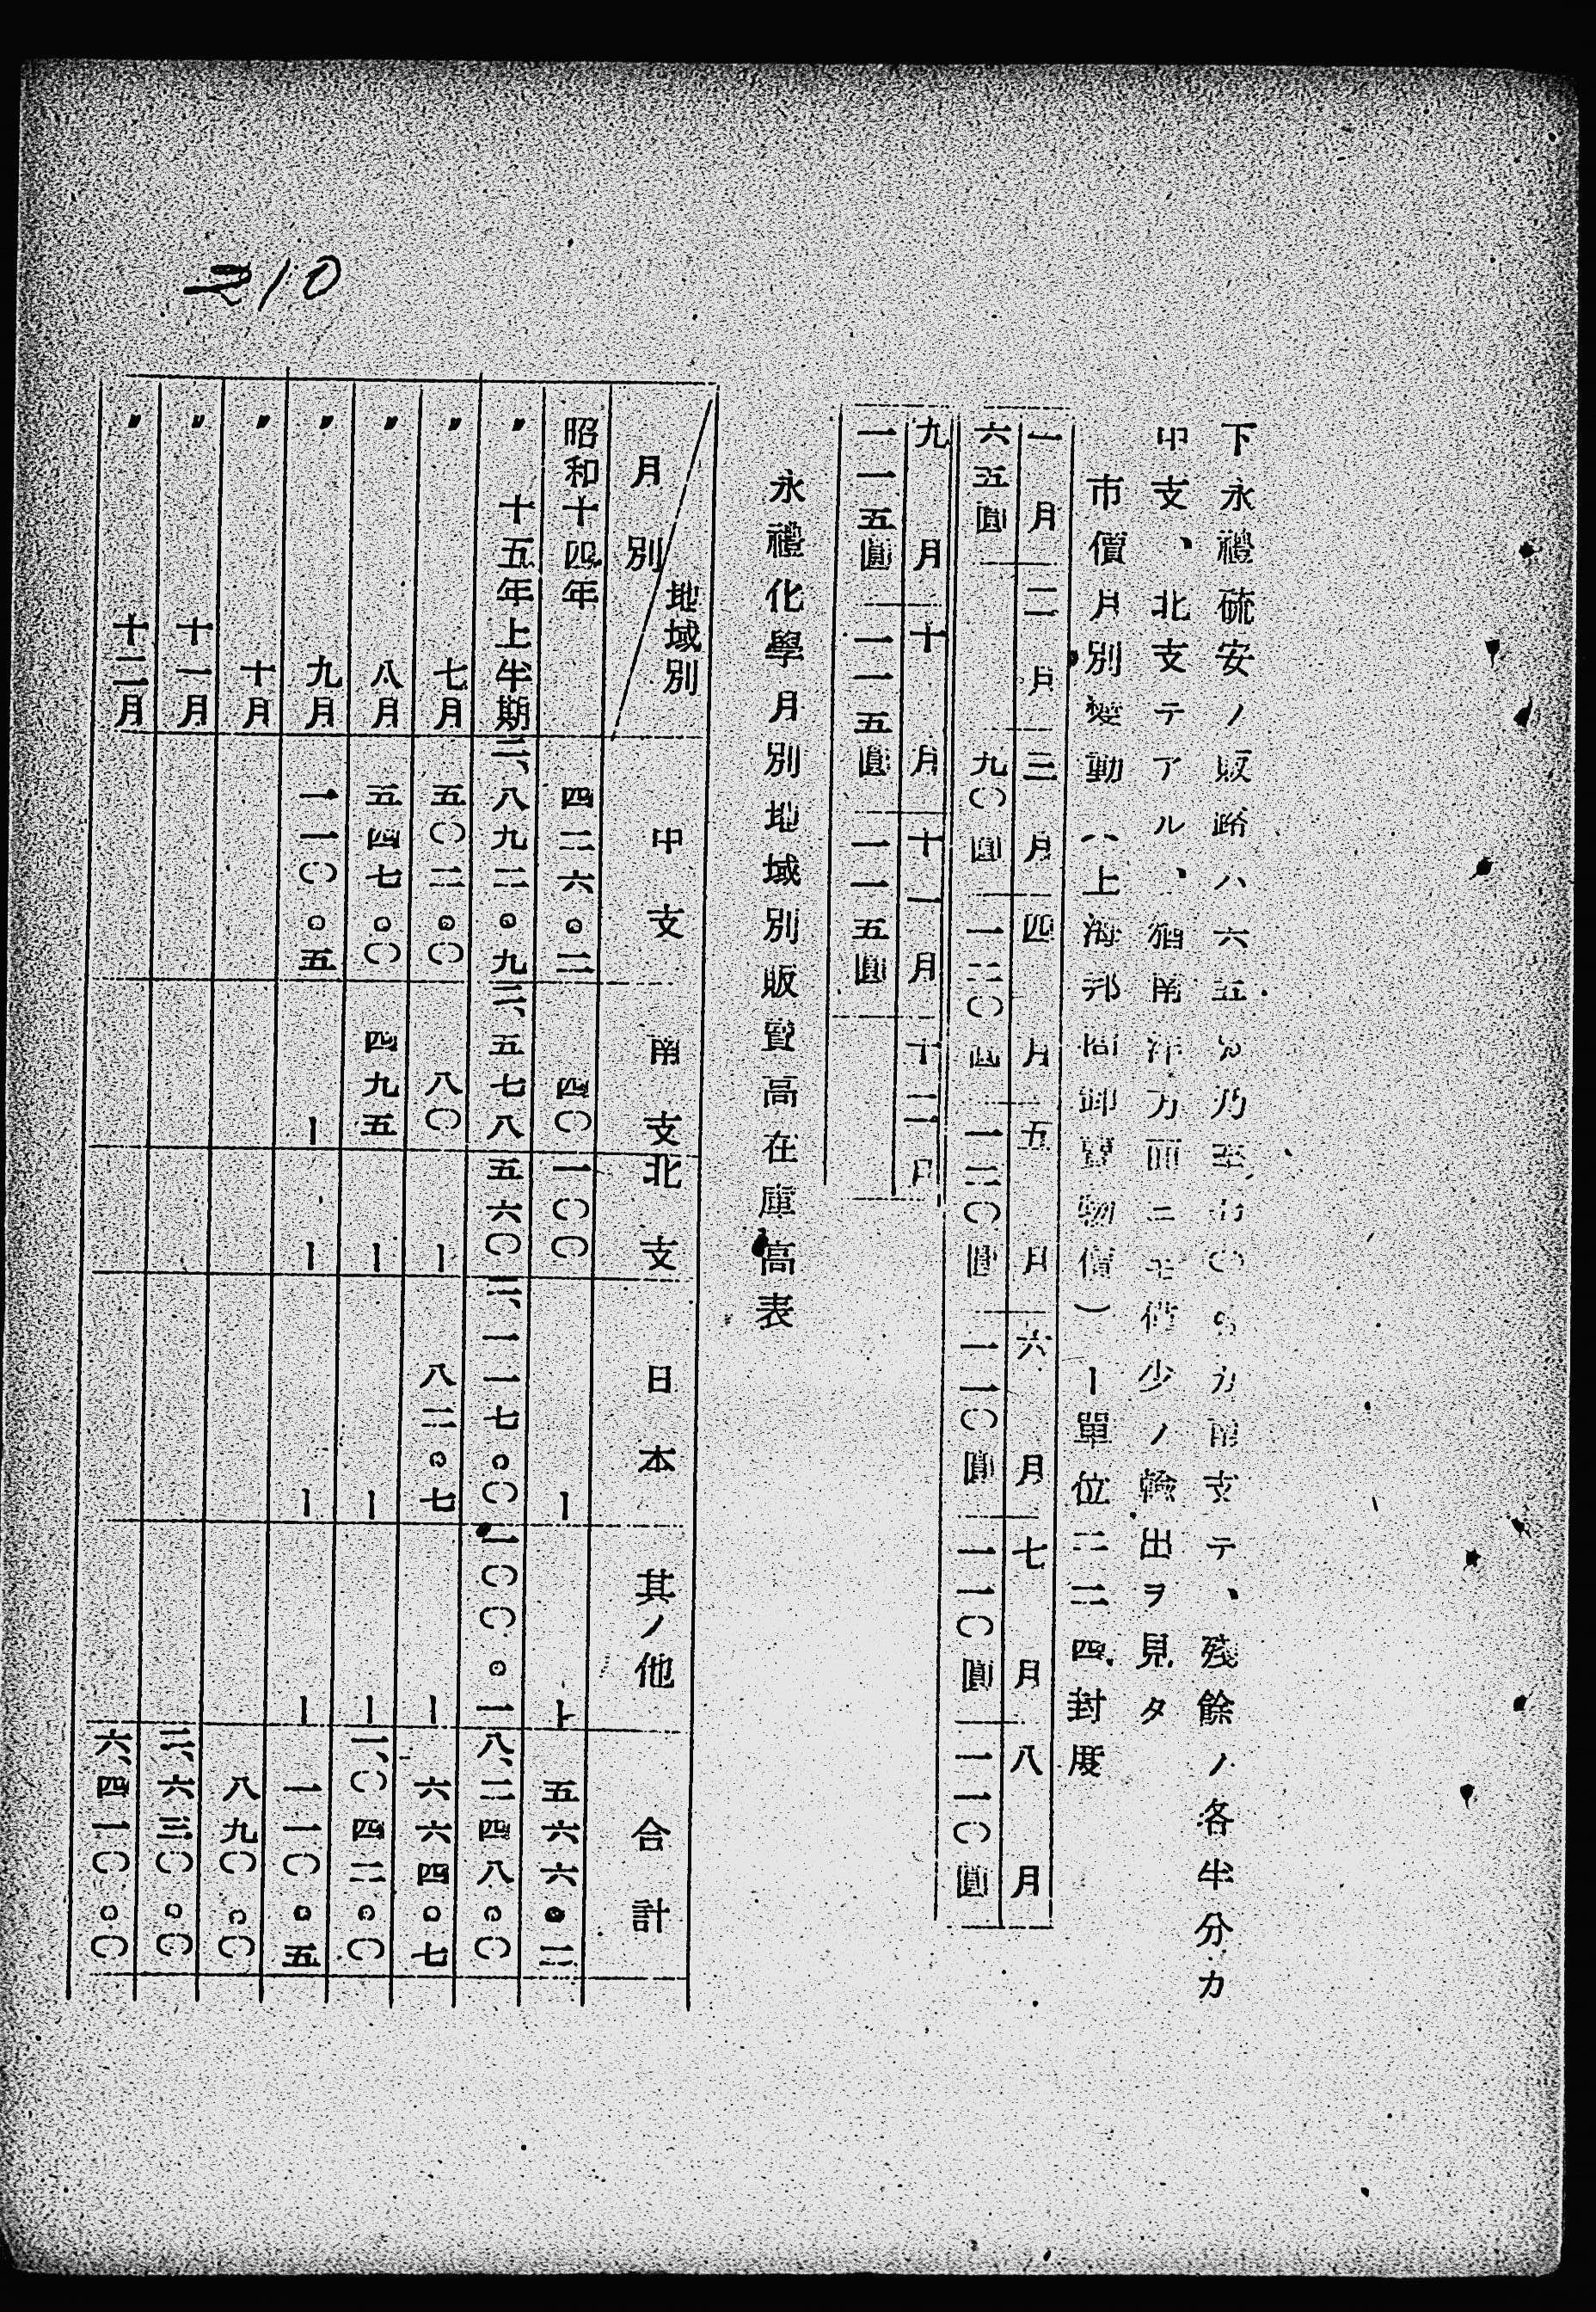 下永禮硫安ノ販路ハ六五%乃至七〇%カ南支テ、残餘ノ各半分カ
中支、北支テアル、猶南洋方面ニモ僅少ノ輸出ヲ見タ
市價月別變動(上海邦商卸賣物價)ー單位二二四封度
一月 二月 三月 四月 五月 六月 七月 八月
六五圓 九〇圓 一二〇圓 一二〇圓 一一〇圓 一一〇圓 一一〇圓
九月 十月 十一月 十二月
一一五圓 一一五圓 一一五圓
永禮化學月別地域別販賣高在庫高表
月別 地域別 中支 南支 北支 日本 其ノ他 合計
昭和十四年 四二六。二 四〇 一〇〇 ー ー 五六六。二
〃 十五年上半期 三、八九二。九 三、五七八 五六〇 一一七。〇 一〇〇。一 八、二四八。〇
〃 七月 五〇二。〇 八〇 ー 八二。七 ー 六六四。七
〃 八月 五四七。〇 四九五 ー ー ー 一、〇四二。〇
〃 九月 一一〇。五 ー ー ー ー 一一〇。五
〃 十月 八九〇。〇
〃 十一月 三、六三〇。〇
〃 十二月 六、四一〇。〇
210